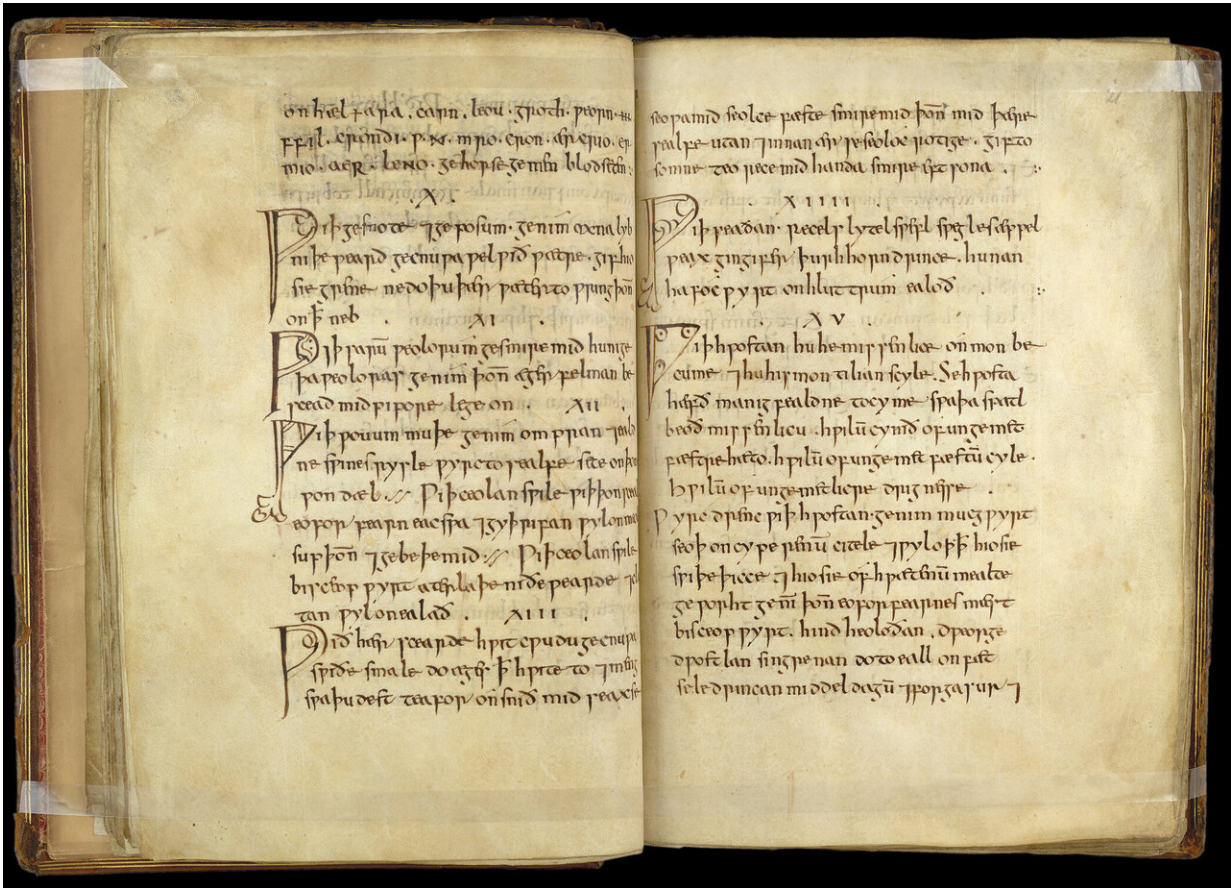 on hæl + ara . carn . leou . groth . ƿeorn . III .
ffil . crondi . ƿ . mro . cron . ær crio . er
mio . aeR . leNo . ge horse ge men blodseten :
. X .
Ƿiþ gesnote ⁊ geposum . genim oxna lyb
niþe ƿeard gecnuƿa ƿel ƿið ƿætre . gif hio
sie grene ne do þu þær ƿæter to ƿring þoñ
on ꝥ neb . . XI .
Ƿiþ sarū ƿeolorum gesmire mid hunige
þa ƿeoloras genim þoñ æger felman be
scead mid pipore lege on . . XII .
Ƿiþ ƿoum muþe genim ompran ⁊ eald
ne sƿines rysle ƿyrc to sealfe sete on þoñ
ƿon dæl :⁊ Ƿiþ ceolan sƿile ƿiþ þon sceal
eofor fearn eac sƿa ⁊ gyþrifan ƿyl on me
sup þoñ ⁊ gebeþe mid :⁊ Ƿiþ ceolan sƿile
bisceop ƿyrt aterlaþe nideƿearde ⁊ cl
tan ƿyl on ealað . XIII .
Ƿið hær scearde hƿit cƿudu gecnuƿa
sƿiðe smale do ægr ꝥ hƿite to ⁊ meng
sƿa þu dest teafor on snið mid seaxse
seoƿa mid seolce fæste smire mid þoñ mid þære
sealfe utan ⁊ innan ær se seoloc rotige . gif to
somne teo rece mid handa smire eft sona . :
. XIIII .
Ƿiþ þeadan . recels lytel sƿefl sƿegles æppel
ƿeax gingifer þurh horn drince . hunan
hafoc ƿyrt on hluttrum ealoð . :
. XV .
Ƿiþ hƿostan hu he missenlice on mon be
cume ⁊ hu his mon tilian scyle . Se hƿosta
hæfð manigfealdne tocyme sƿa þa spatl
beoð missenlicu . hƿilū cymð of ungemet
fæstre hæto . hƿilū of ungemet fæstū cyle .
hƿilū of ungemetlicre drignesse .
Ƿyrc drenc ƿiþ hƿostan . genim mucgƿyrt
seoþ on cyperenū citele ⁊ ƿyl oþꝥ hio sie
sƿiþe þicce ⁊ hio sie of hƿætenū mealte
geƿorht geniм þoñ eofor fearnes mæst
bisceop ƿyrt . hind heoloðan . dƿeorge
dƿostlan singrenan do to eall on fæt
sele drincan middeldagū ⁊ forga sur ⁊